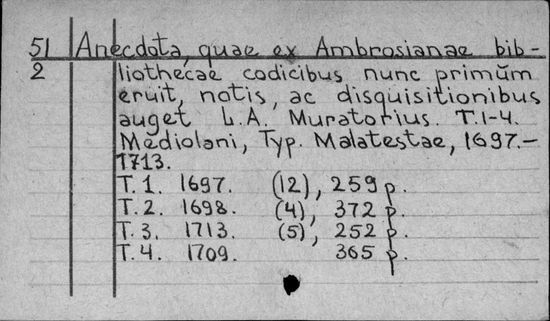 51 Anecdota, quae ex Ambrosianae bib-
2 liothecae codicibus nunc primŭm
eruit, notis, ac disquisitionibus
auget L.A. Muratorius. T.1-4.
Mediolani, Typ. Malatestae, 1697.-
1713.
T.1. 1697. (12), 259 p.
T.2. 1698. (4), 372 p.
T.3. 1713. (5), 252 p.
T.4. 1709. 365 p.